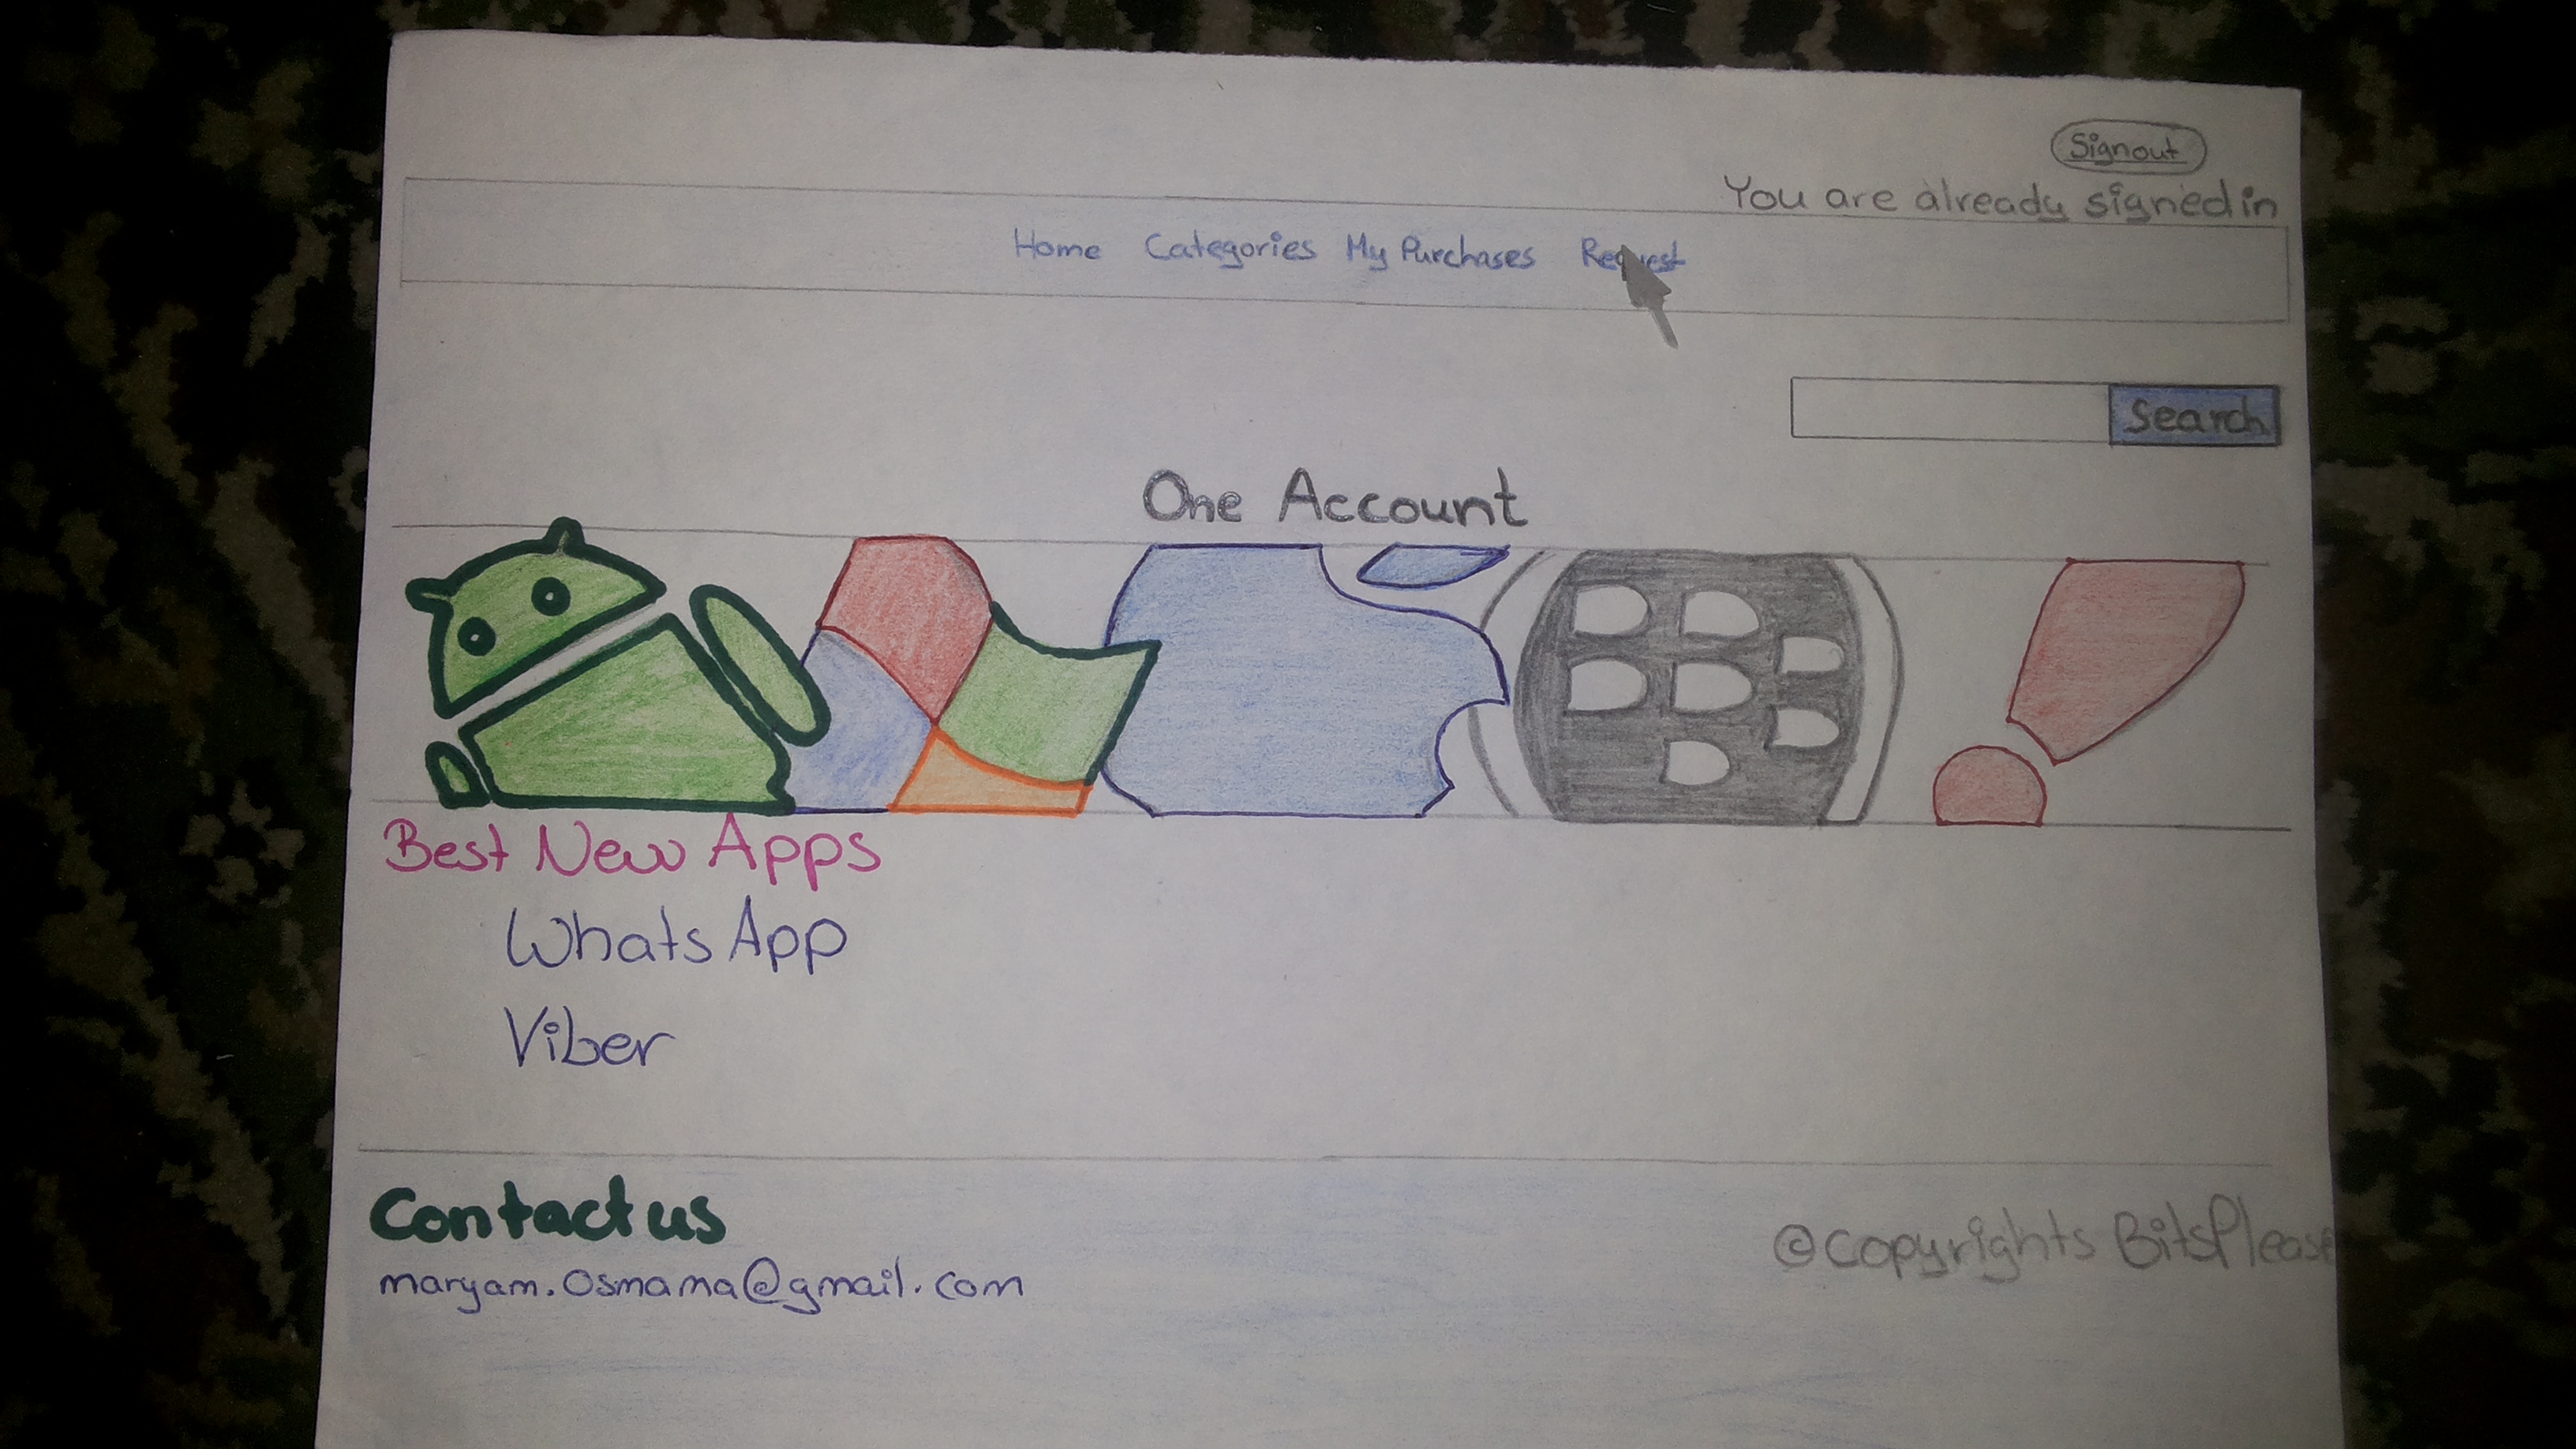 Signout
You are already signed in
Home Categories My Purchases Request
Search
One Account
Best New Apps
Whats App
Viber
Contact us
maryam.osmama@gmail.com
@copyrights BitsPlease